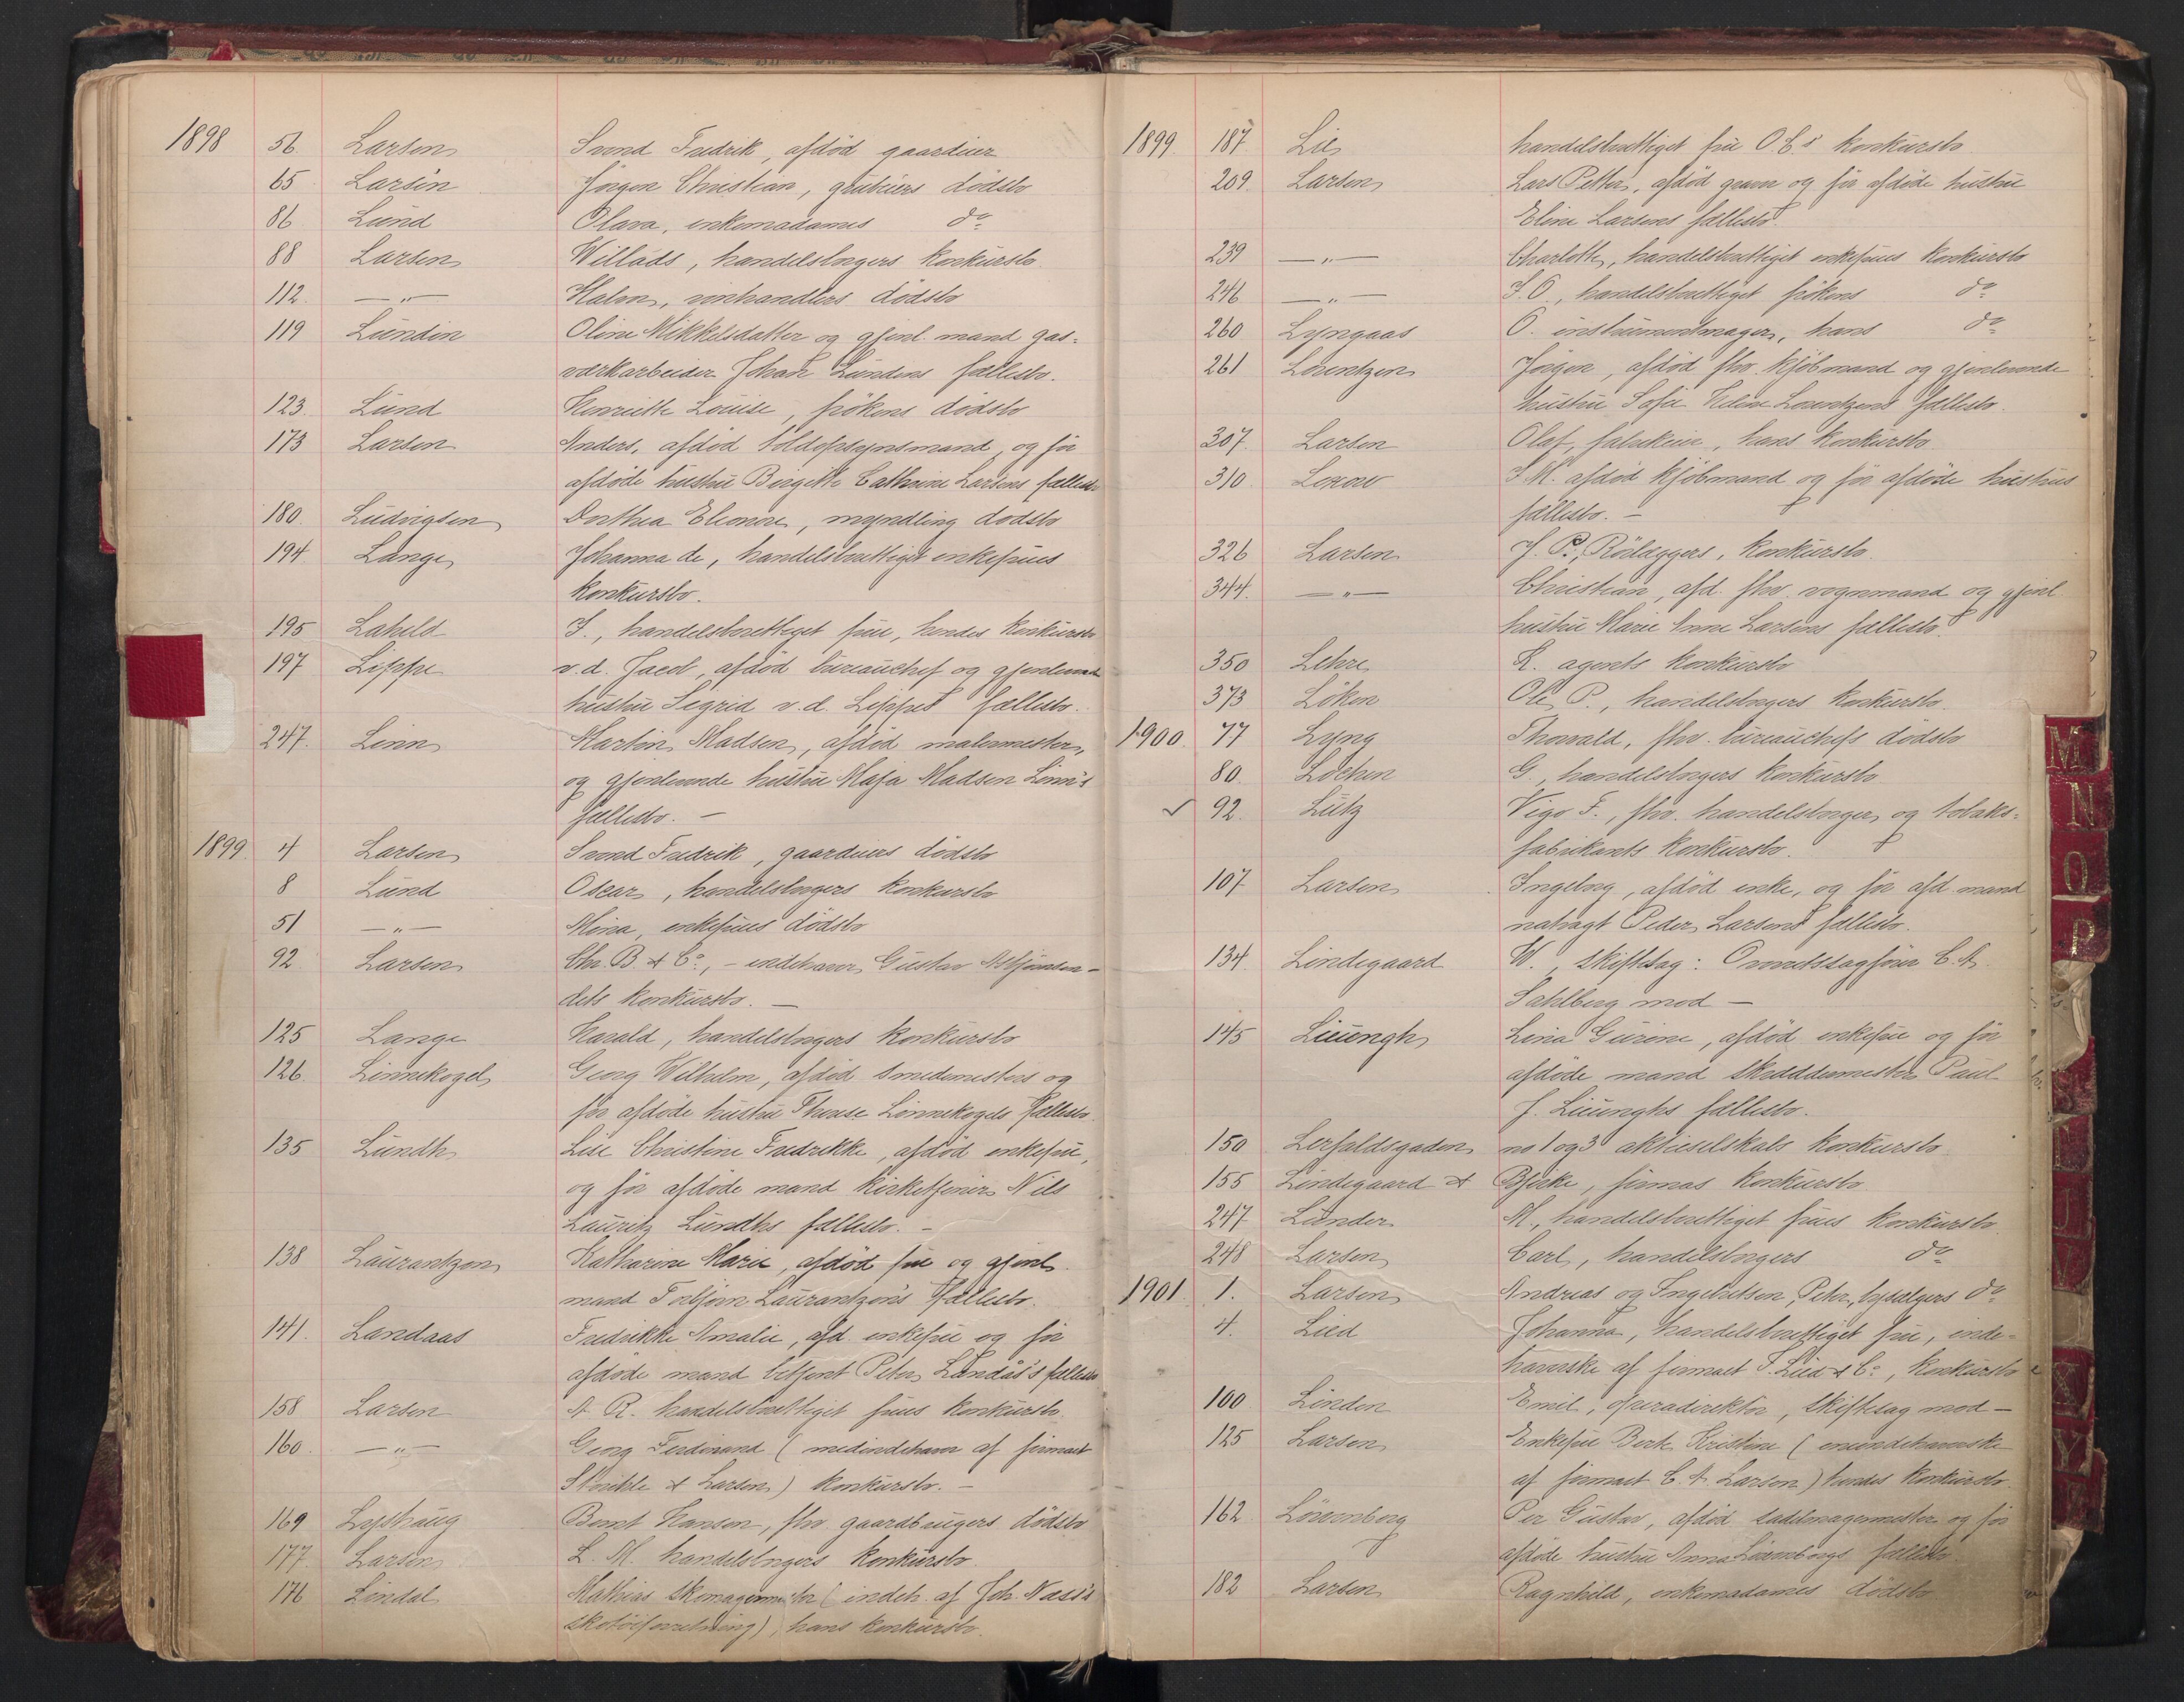 1898 56 Larsen Svend Fredrik, afdød gaardeier
65 Larsen Jørgen Christian, grubeiers dødsbo
86 Lund Olava, enkemadames do
88 Larsen Willads, handelsborgers konkursbo
112 —„— Halvor, vinhandlers dødsbo
119 Lundin Oline Mikkelsdatter og gjenl. mand gas-
værkarbeider Johan Lundens fællesbo.
123 Lund Henriette Louise, frökens dödsbo
173 Larsen Anders, afdød toldopsynsmand, og før
afdøde hustru Birgitte Cathrine Larsens fællesbo
180 Ludvigsen Dorthea Elenore, myndling dødsbo
194 Lange Johanna de, handelsberettiget enkefrues
konkursbo.
195 J., handelsberettiget frue, hendes konkursbo
197 Lippe v. d. Jacob, afdød bureauchef og gjenlevende
hustru Sigrid v. d. Lippes fællesbo.
247 Linn Martin Madsen, afdød malermester,
og gjenlevende hustru Maja Madsen Linn's
fællesbo. —
1899 4 Larsen Svend Fredrik, gaardeiers dødsbo
8 Lund Oscar, handelsborgers konkursbo
51 —„— Mina, enkefrues dødsbo
92 Larsen Chr. B. & Co, – indehaver Gustav
dets konkursbo. —
125 Lange Harald, handelsborgers konkursbo
126 Linnekogel Georg Wilhelm, afdød smedemesters og
før afdøde hustru Therese Linnekogels fællesbo.
135 Lundh Lise Christine Fredrikke, afdød enkefrue,
og før afdøde mand kirketjener Nils
Lauritz Lundhs fællesbo. –
138 Laurantzon Katharine Marie, afdød frue og gjenl.
mand Torbjørn Laurantzon's fællesbo.
141 Landaas Fredrikke Amalie, afd. enkefrue og før
afdøde mand betjent Peter Landås's fællesbo
158 Larsen A. R. handelsberettiget frues konkursbo
160 —„— Georg Ferdinand (medindehaver af firmaet
& Larsen) konkursbo. –
169 Lysthaug Bernt Hansen, fhv. gaardbrugers dødsbo
177 Larsen L. M. handelsborgers konkursbo.
176 Lindal Mathias skomagermester (indeh. af Joh. Næss's
skotøiforretning), hans konkursbo.
1899 187 Lie handelsberettiget frue O. E.s konkursbo
209 Larsen Lars Petter, afdød graver og før afdøde hustru
Eline Larsens fællesbo.
239 —„— Charlotte, handelsberettiget enkefrues konkursbo
246 —„— J. O., handelsberettiget frökens do
260 Lyngaas O. instrumentmager, hans do
261 Lorentzen Jørgen, afdød fhv. kjøbmand og gjenlevende
hustru Sofie Helene Lorentzens fællesbo.
307 Larsen Olaf, fabrikeier, hans konkursbo
310 J. M. afdød kjøbmand og før afdøde hustrus
fællesbo. –
326 Larsen J. P., Rørlæggers, konkursbo.
344 —„— Christian, afd. fhv. vognmand og gjenl.
hustru Marie Anne Larsens fællesbo.
350 Lehre R. agents konkursbo
373 Løken Ole P., handelsborgers konkursbo.
1900 77 Lyng Thorvald, fhv. bureauchefs dødsbo
80 Løchen G., handelsborgers konkursbo
✓ 92 Lutz Vigo F., fhv. handelsborger, og tobaks-
fabrikants konkursbo.
107 Larsen Ingeborg, afdød enke, og før afd. mand
natvagt Peder Larsens fællesbo.
134 Lindegaard W., skiftesag: Overretssagfører C. A.
Sahlberg mod —
145 Liuengh Lina Gurine, afdød enkefrue og før
afdøde mand skræddermester Paul
J. Liuenghs fællesbo.
150 Lerfaldsgaden no 1 og 3 aktieselskabs konkursbo.
155 Lindegaard & Bjerke, firmas konkursbo
247 Lunder M., handelsberettiget frues konkursbo.
248 Larsen Carl, handelsborgers do
1901 1. Larsen Andreas og Ingebretsen, Peter, do
4. Lied Johanna, handelsberettiget frue, inde-
haverske af firmaet J. Lied & Co, konkursbo
100 Linden Emil, operadirektør, skiftesag mod –
125 Larsen Enkefrue Kristine (eneindehaverske
af firmaet C. A. Larsen) hendes konkursbo.
162 Løvenborg Per Gustav, afdød sadelmagermester og før
afdøde hustru Anna Løvenborgs fællesbo
182 Larsen Ragnhild, enkemadames dødsbo
M
N
O
P